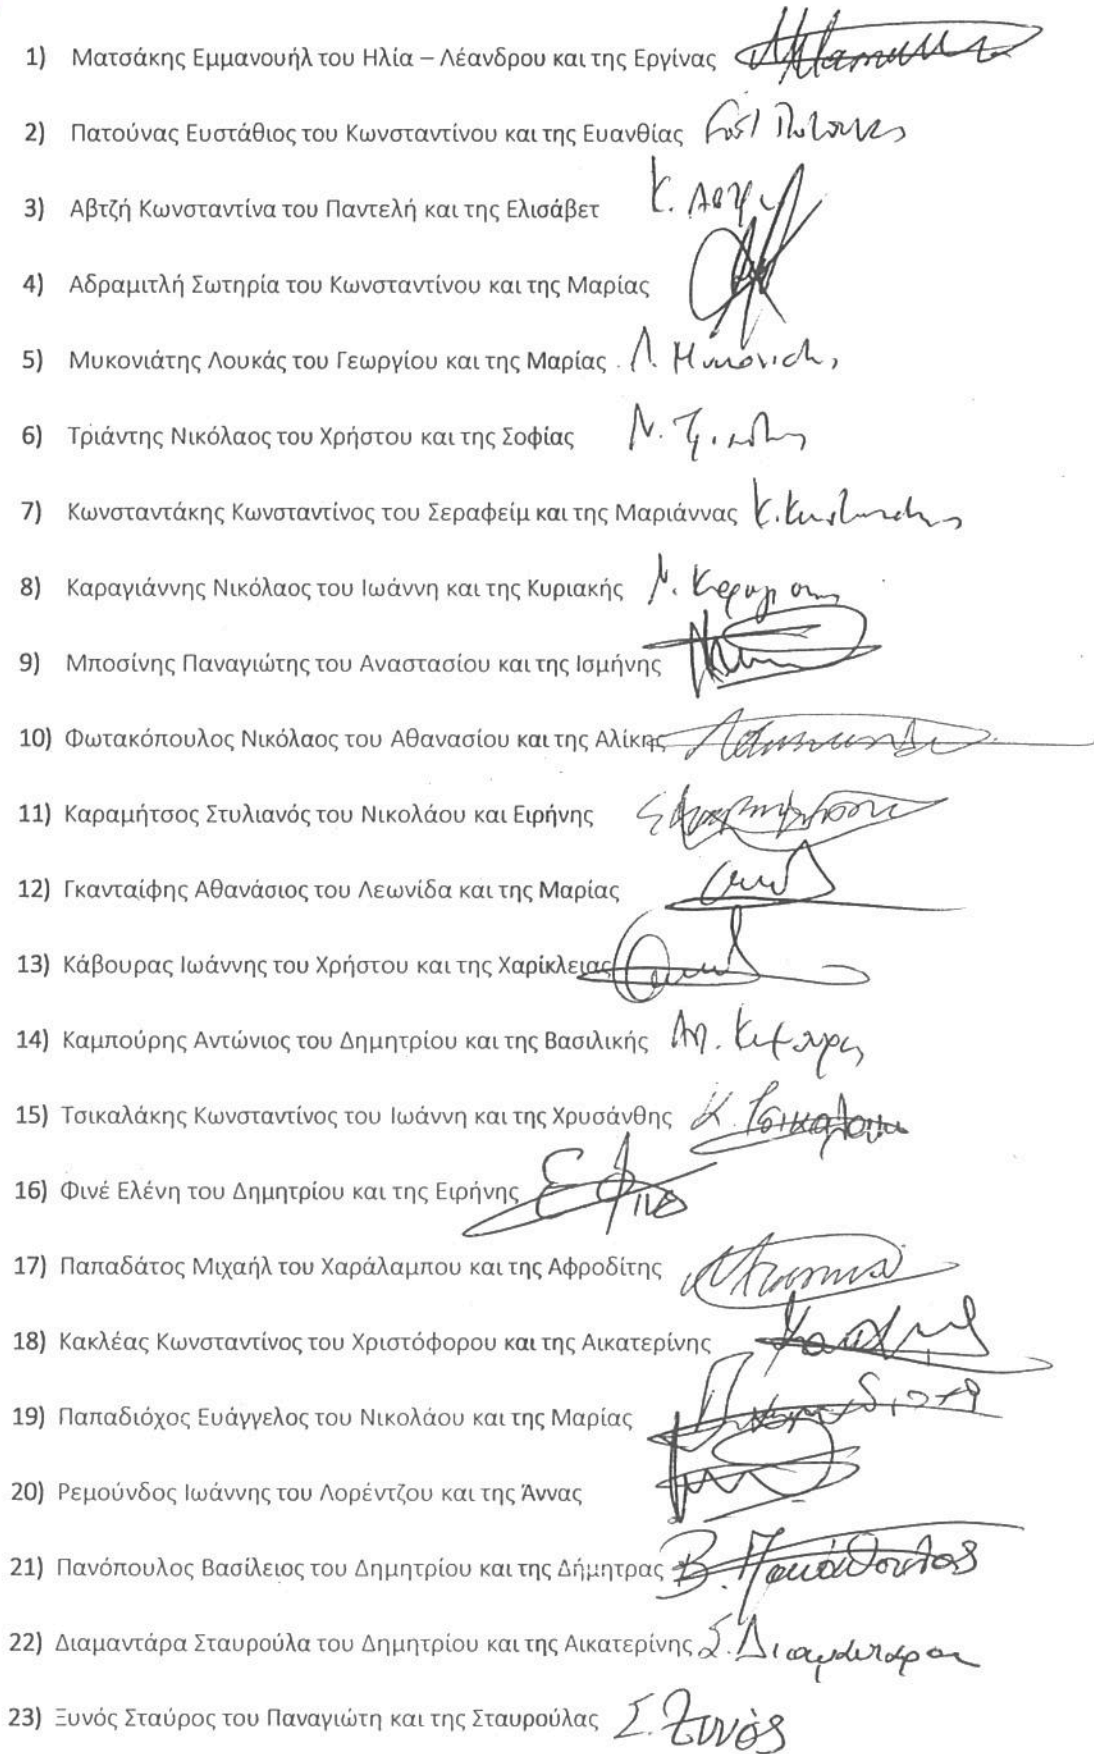 1) Ματσάκης Εμμανουήλ του Ηλία – Λέανδρου και της Εργίνας
2) Πατούνας Ευστάθιος του Κωνσταντίνου και της Ευανθίας
3) Αβτζή Κωνσταντίνα του Παντελή και της Ελισάβετ Κ.
4) Αδραμιτλή Σωτηρία του Κωνσταντίνου και της Μαρίας
5) Μυκονιάτης Λουκάς του Γεωργίου και της Μαρίας Λ.
6) Τριάντης Νικόλαος του Χρήστου και της Σοφίας Ν.
7) Κωνσταντάκης Κωνσταντίνος του Σεραφείμ και της Μαριάννας Κ.
8) Καραγιάννης Νικόλαος του Ιωάννη και της Κυριακής Ν.
9) Μποσίνης Παναγιώτης του Αναστασίου και της Ισμήνης
10) Φωτακόπουλος Νικόλαος του Αθανασίου και της Αλίκης
11) Καραμήτσος Στυλιανός του Νικολάου και Ειρήνης
12) Γκανταίφης Αθανάσιος του Λεωνίδα και της Μαρίας
13) Κάβουρας Ιωάννης του Χρήστου και της Χαρίκλειας
14) Καμπούρης Αντώνιος του Δημητρίου και της Βασιλικής
15) Τσικαλάκης Κωνσταντίνος του Ιωάννη και της Χρυσάνθης Κ.
16) Φινέ Ελένη του Δημητρίου και της Ειρήνης Ε Φινέ
17) Παπαδάτος Μιχαήλ του Χαράλαμπου και της Αφροδίτης
18) Κακλέας Κωνσταντίνος του Χριστόφορου και της Αικατερίνης
19) Παπαδιόχος Ευάγγελος του Νικολάου και της Μαρίας
20) Ρεμούνδος Ιωάννης του Λορέντζου και της Άννας
21) Πανόπουλος Βασίλειος του Δημητρίου και της Δήμητρας Β. Πανόπουλος
22) Διαμαντάρα Σταυρούλα του Δημητρίου και της Αικατερίνης Σ. Διαμαντάρα
23) Ξυνός Σταύρος του Παναγιώτη και της Σταυρούλας Σ. Ξυνός